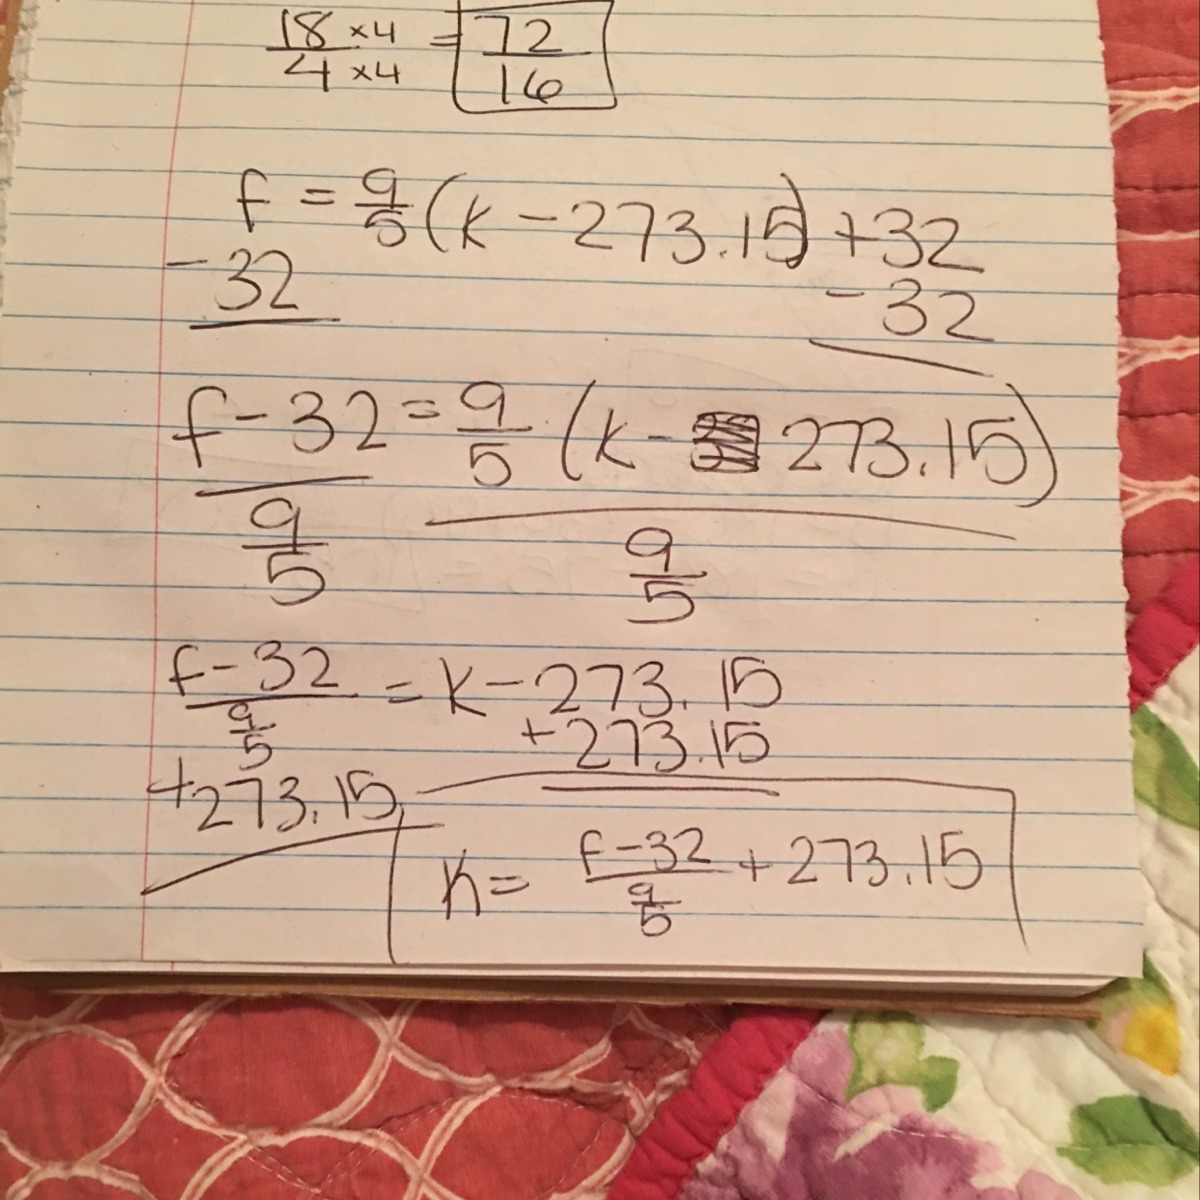 18 ×4 / 4 ×4 = 72/16
f = 9/5 (k − 273.15) + 32
− 32 − 32
f − 32 = 9/5 (k − 273.15)
9/5 9/5
f − 32 / 9/5 = k − 273.15
+ 273.15
+ 273.15
k = f − 32 / 9/5 + 273.15